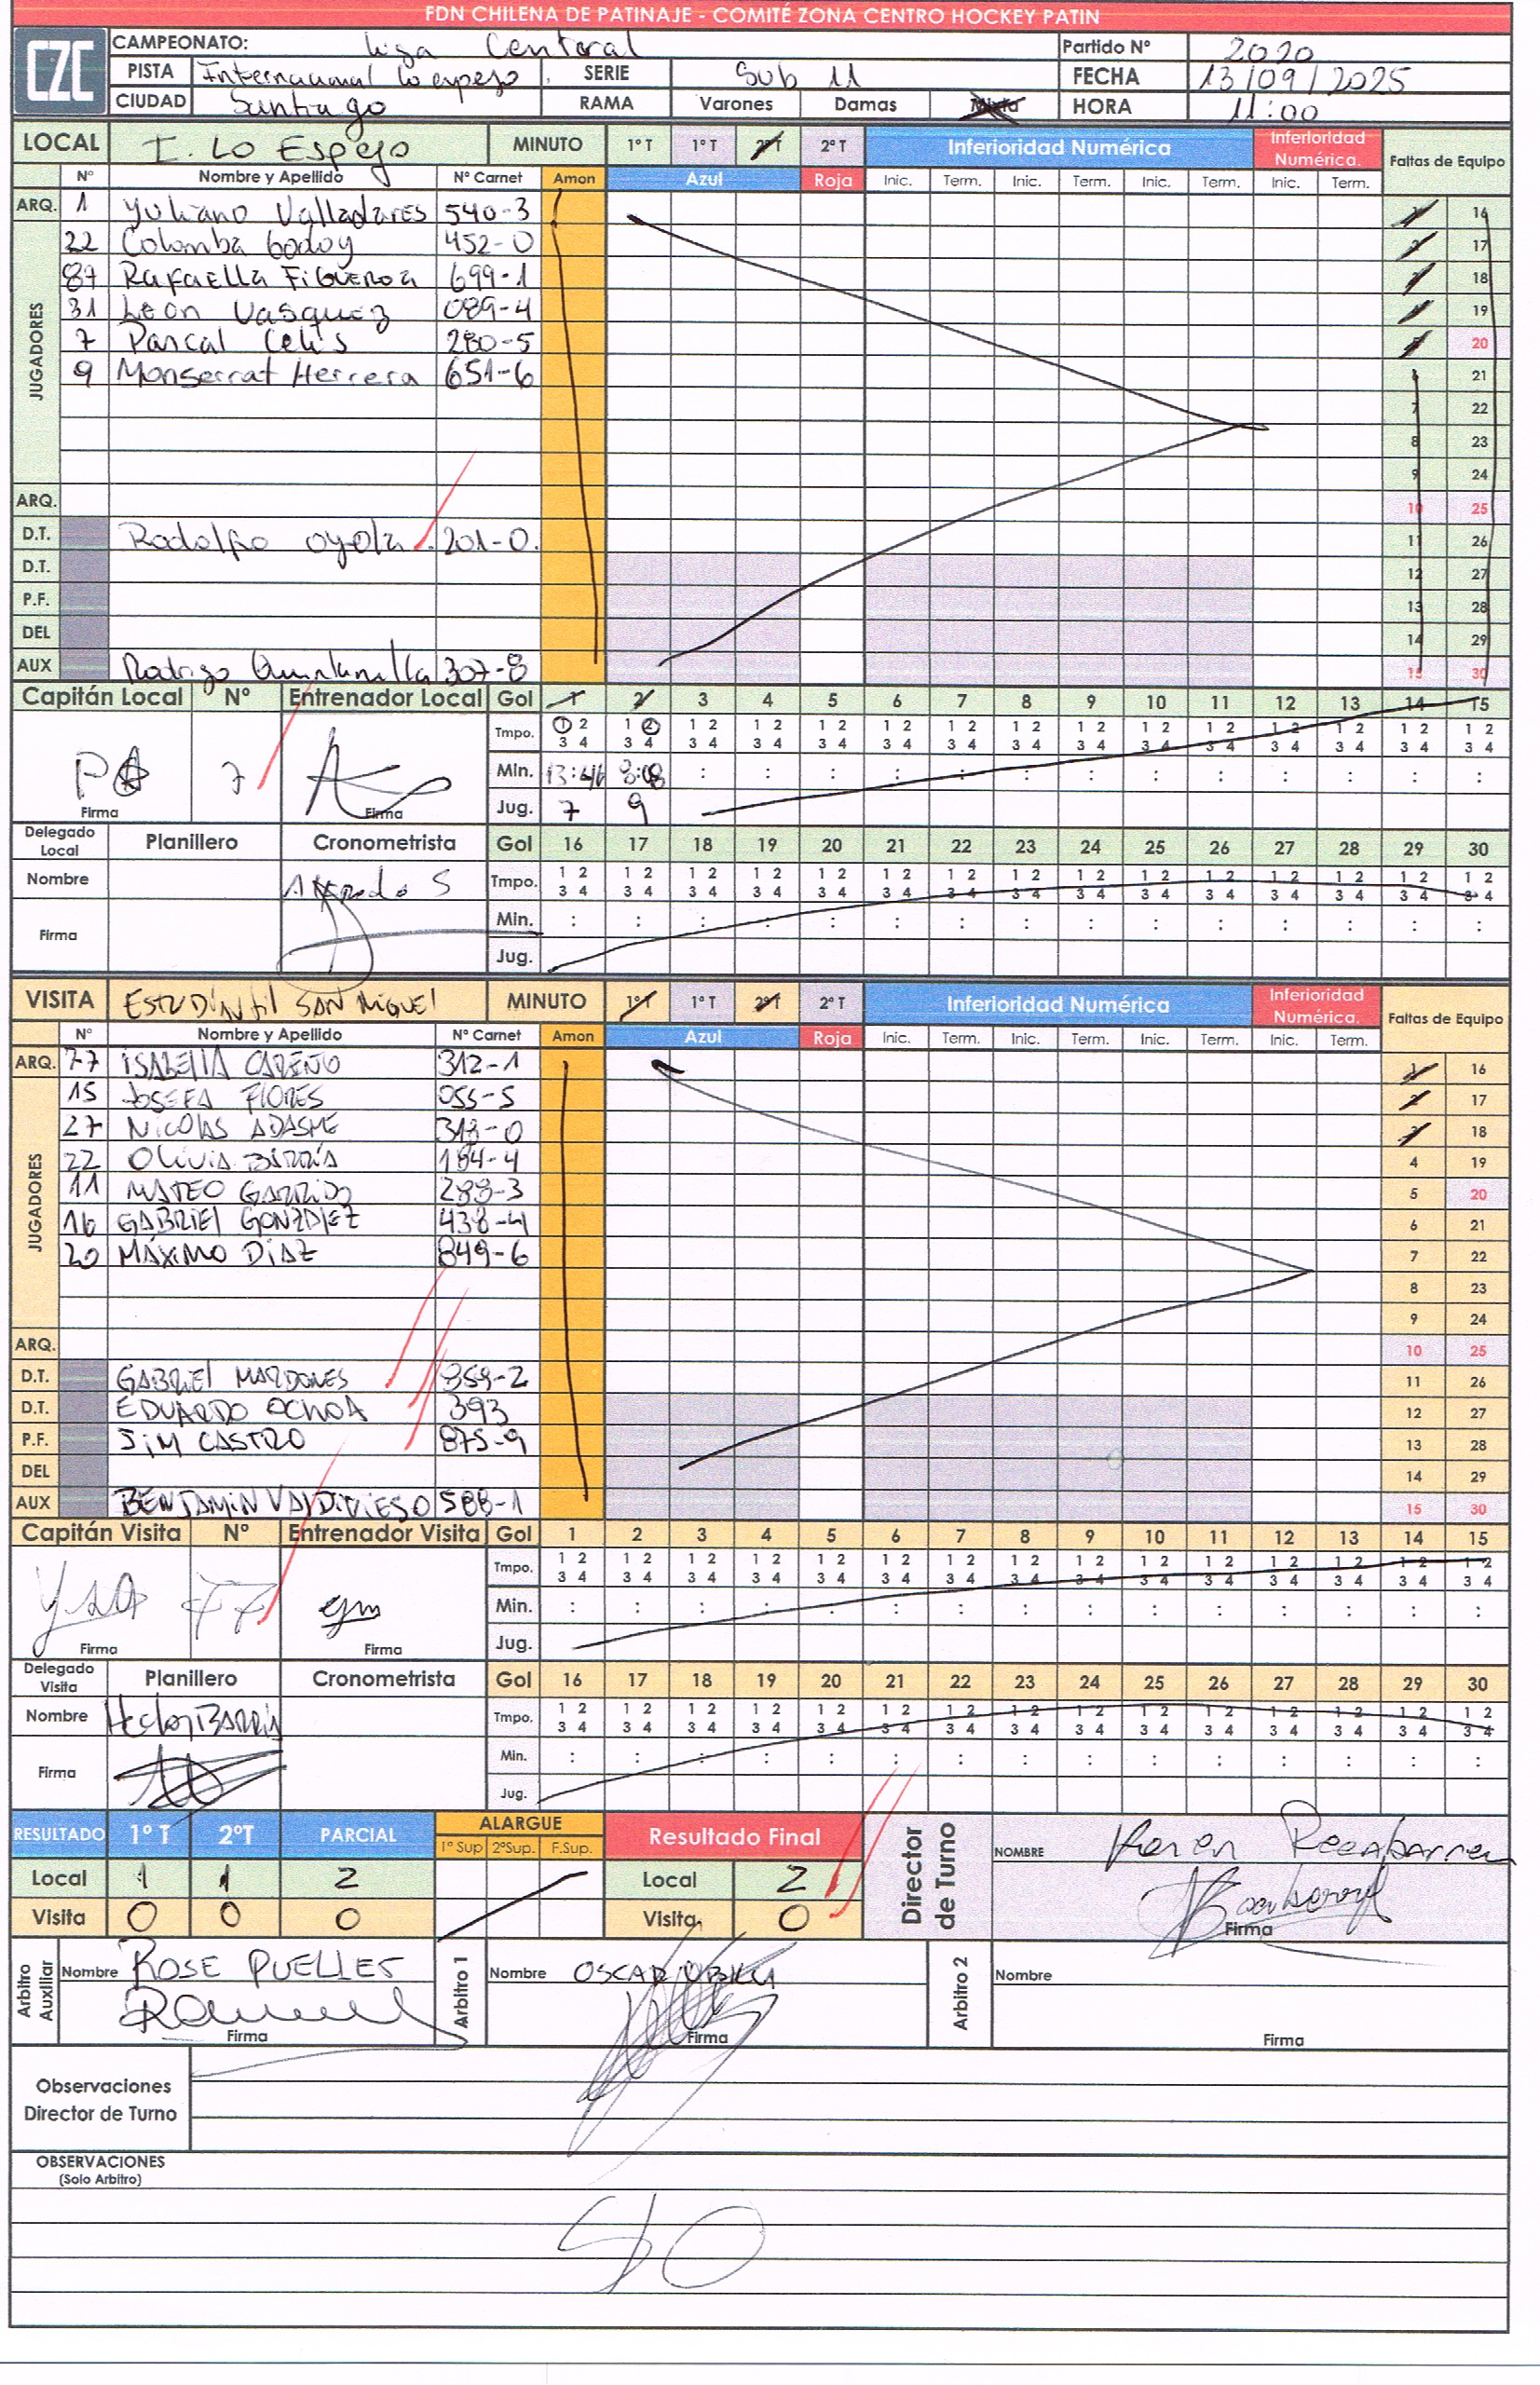 FDN CHILENA DE PATINAJE - COMITÉ ZONA CENTRO HOCKEY PATIN
CZC
CAMPEONATO: Liga Central Partido Nº 2020
PISTA Internacional lo espejo SERIE Sub 11 FECHA 13/09/2025
CIUDAD Santiago RAMA Varones Damas Mixta HORA 11:00
LOCAL I. Lo Espejo MINUTO 1º T 1º T 2º T 2º T Inferioridad Numérica Inferioridad Numérica. Faltas de Equipo
Nº Nombre y Apellido Nº Carnet Amon Azul Roja Inic. Term. Inic. Term. Inic. Term. Inic. Term.
ARQ. 1 Yuliano Valladares 540-3 1 16
JUGADORES
22 Colomba Godoy 452-0 2 17
87 Rafaella Figueroa 699-1 3 18
31 Leon Vasquez 089-4 4 19
7 Pascal Celis 280-5 5 20
9 Monserrat Herrera 651-6 6 21
7 22
8 23
9 24
ARQ. 10 25
D.T. Rodolfo oyola 201-0. 11 26
D.T. 12 27
P.F. 13 28
DEL 14 29
AUX Rodrigo Quintanilla 307-8 15 30
Capitán Local Nº Entrenador Local Gol 1 2 3 4 5 6 7 8 9 10 11 12 13 14 15
Tmpo. 1 2 1 2 1 2 1 2 1 2 1 2 1 2 1 2 1 2 1 2 1 2 1 2 1 2 1 2 1 2
3 4 3 4 3 4 3 4 3 4 3 4 3 4 3 4 3 4 3 4 3 4 3 4 3 4 3 4 3 4
7 Min. 13:46 : : : : : : : : : : : : :
Firma Firma Jug. 7 9
Delegado Local Planillero Cronometrista Gol 16 17 18 19 20 21 22 23 24 25 26 27 28 29 30
Nombre Alfredo S Tmpo. 1 2 1 2 1 2 1 2 1 2 1 2 1 2 1 2 1 2 1 2 1 2 1 2 1 2 1 2 1 2
3 4 3 4 3 4 3 4 3 4 3 4 3 4 3 4 3 4 3 4 3 4 3 4 3 4 3 4 3 4
Firma Min. : : : : : : : : : : : : : : :
Jug.
VISITA ESTUDIANTIL SAN MIGUEL MINUTO 1º T 1º T 2º T 2º T Inferioridad Numérica Inferioridad Numérica. Faltas de Equipo
Nº Nombre y Apellido Nº Carnet Amon Azul Roja Inic. Term. Inic. Term. Inic. Term. Inic. Term.
ARQ. 77 ISABELLA CAREÑO 312-1 1 16
JUGADORES
15 JOSEFA FLORES 055-5 2 17
27 NICOLAS ADASME 318-0 3 18
22 OLIVIA BARRÍA 184-4 4 19
11 MATEO GARRIDO 288-3 5 20
16 GABRIEL GONZALEZ 438-4 6 21
20 MÁXIMO DÍAZ 849-6 7 22
8 23
9 24
ARQ. 10 25
D.T. GABRIEL MARDONES 859-2 11 26
D.T. EDUARDO OCHOA 393 12 27
P.F. JIM CASTRO 875-9 13 28
DEL 14 29
AUX BENJAMIN VALDIVIESO 588-1 15 30
Capitán Visita Nº Entrenador Visita Gol 1 2 3 4 5 6 7 8 9 10 11 12 13 14 15
Tmpo. 1 2 1 2 1 2 1 2 1 2 1 2 1 2 1 2 1 2 1 2 1 2 1 2 1 2 1 2 1 2
3 4 3 4 3 4 3 4 3 4 3 4 3 4 3 4 3 4 3 4 3 4 3 4 3 4 3 4 3 4
77 Min. : : : : : : : : : : : : : : :
Firma Firma Jug.
Delegado Visita Planillero Cronometrista Gol 16 17 18 19 20 21 22 23 24 25 26 27 28 29 30
Nombre Hector BARRIA Tmpo. 1 2 1 2 1 2 1 2 1 2 1 2 1 2 1 2 1 2 1 2 1 2 1 2 1 2 1 2 1 2
3 4 3 4 3 4 3 4 3 4 3 4 3 4 3 4 3 4 3 4 3 4 3 4 3 4 3 4 3 4
Firma Min. : : : : : : : : : : : : : : :
Jug.
RESULTADO 1º T 2ºT PARCIAL ALARGUE Resultado Final Director de Turno
1º Sup 2ºSup. F.Sup.
NOMBRE Karen Recabarren
Local 1 1 2 Local 2
Visita 0 0 0 Visita 0 Firma
Arbitro Auxiliar Nombre ROSE PUELLES Arbitro 1 Nombre OSCAR UBILLA Arbitro 2 Nombre
Firma Firma Firma
Observaciones
Director de Turno
OBSERVACIONES
(Solo Arbitro)
S/O